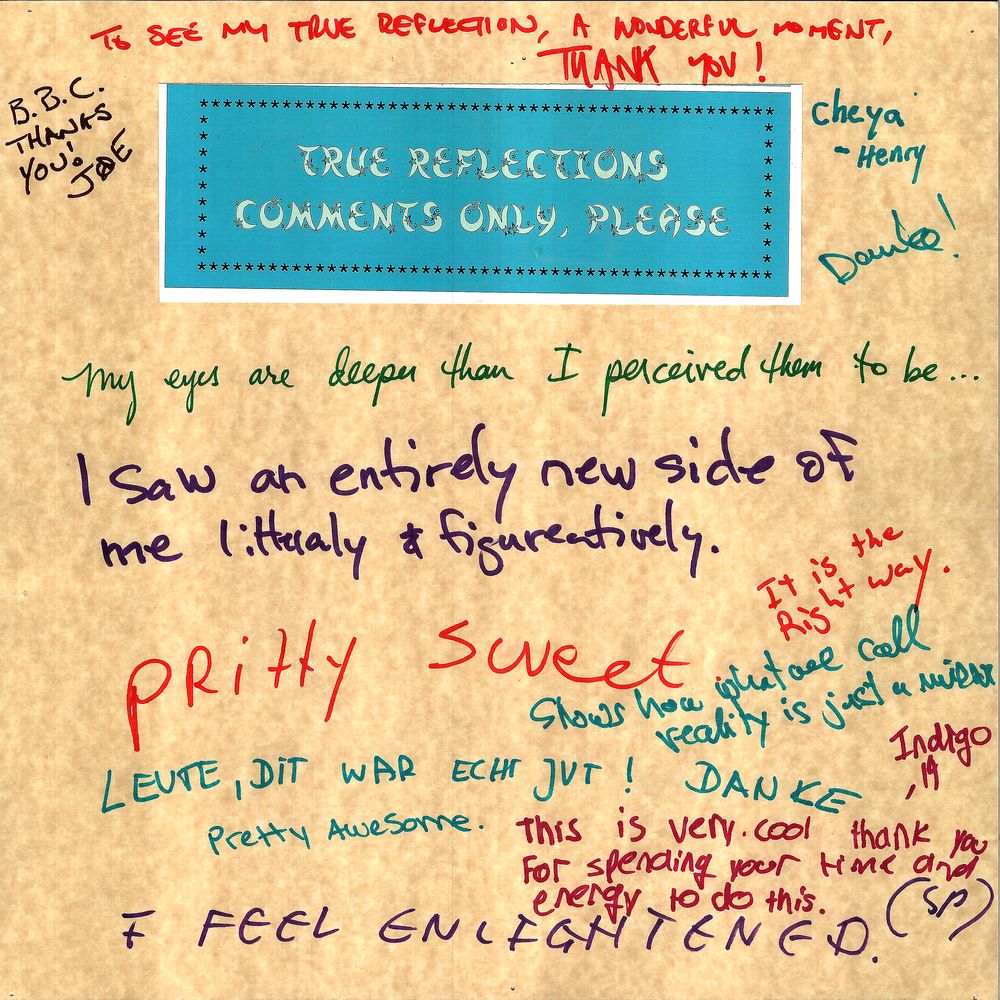 To SEE MY TRUE REFLECTION, A WONDERFUL MOMENT,
THANK YOU!
B.B.C.
THANKS
YOU!
JOE
TRUE REFLECTIONS
COMMENTS ONLY, PLEASE
Cheya
- Henry
Danke!
My eyes are deeper than I perceived them to be...
I saw an entirely new side of
me litturaly & figureatively.
It is the
Right way.
PRitty sweet
Shows how what we call
reality is just a mirror
Indigo
, 14
LEUTE, DIT WAR ECHT JUT! DANKE
Pretty Awesome.
This is very cool thank you
For spending your time and
energy to do this.
I FEEL ENLIGHTENED. (SP)